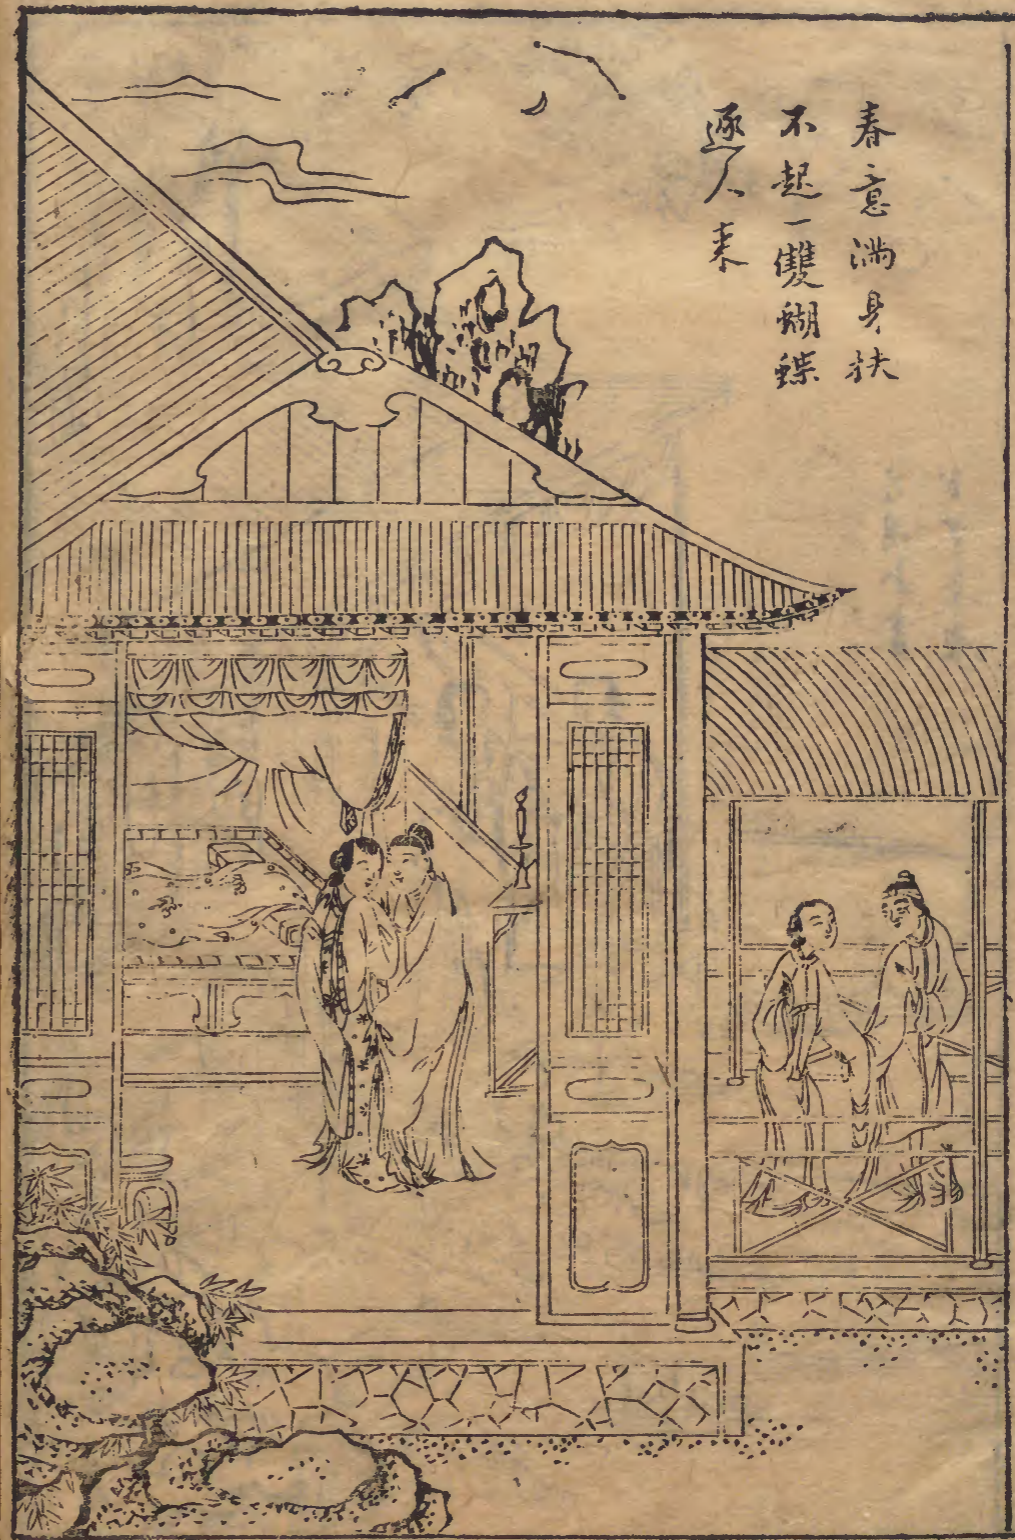 春意滿身扶
不起一雙蝴蝶
逐人來